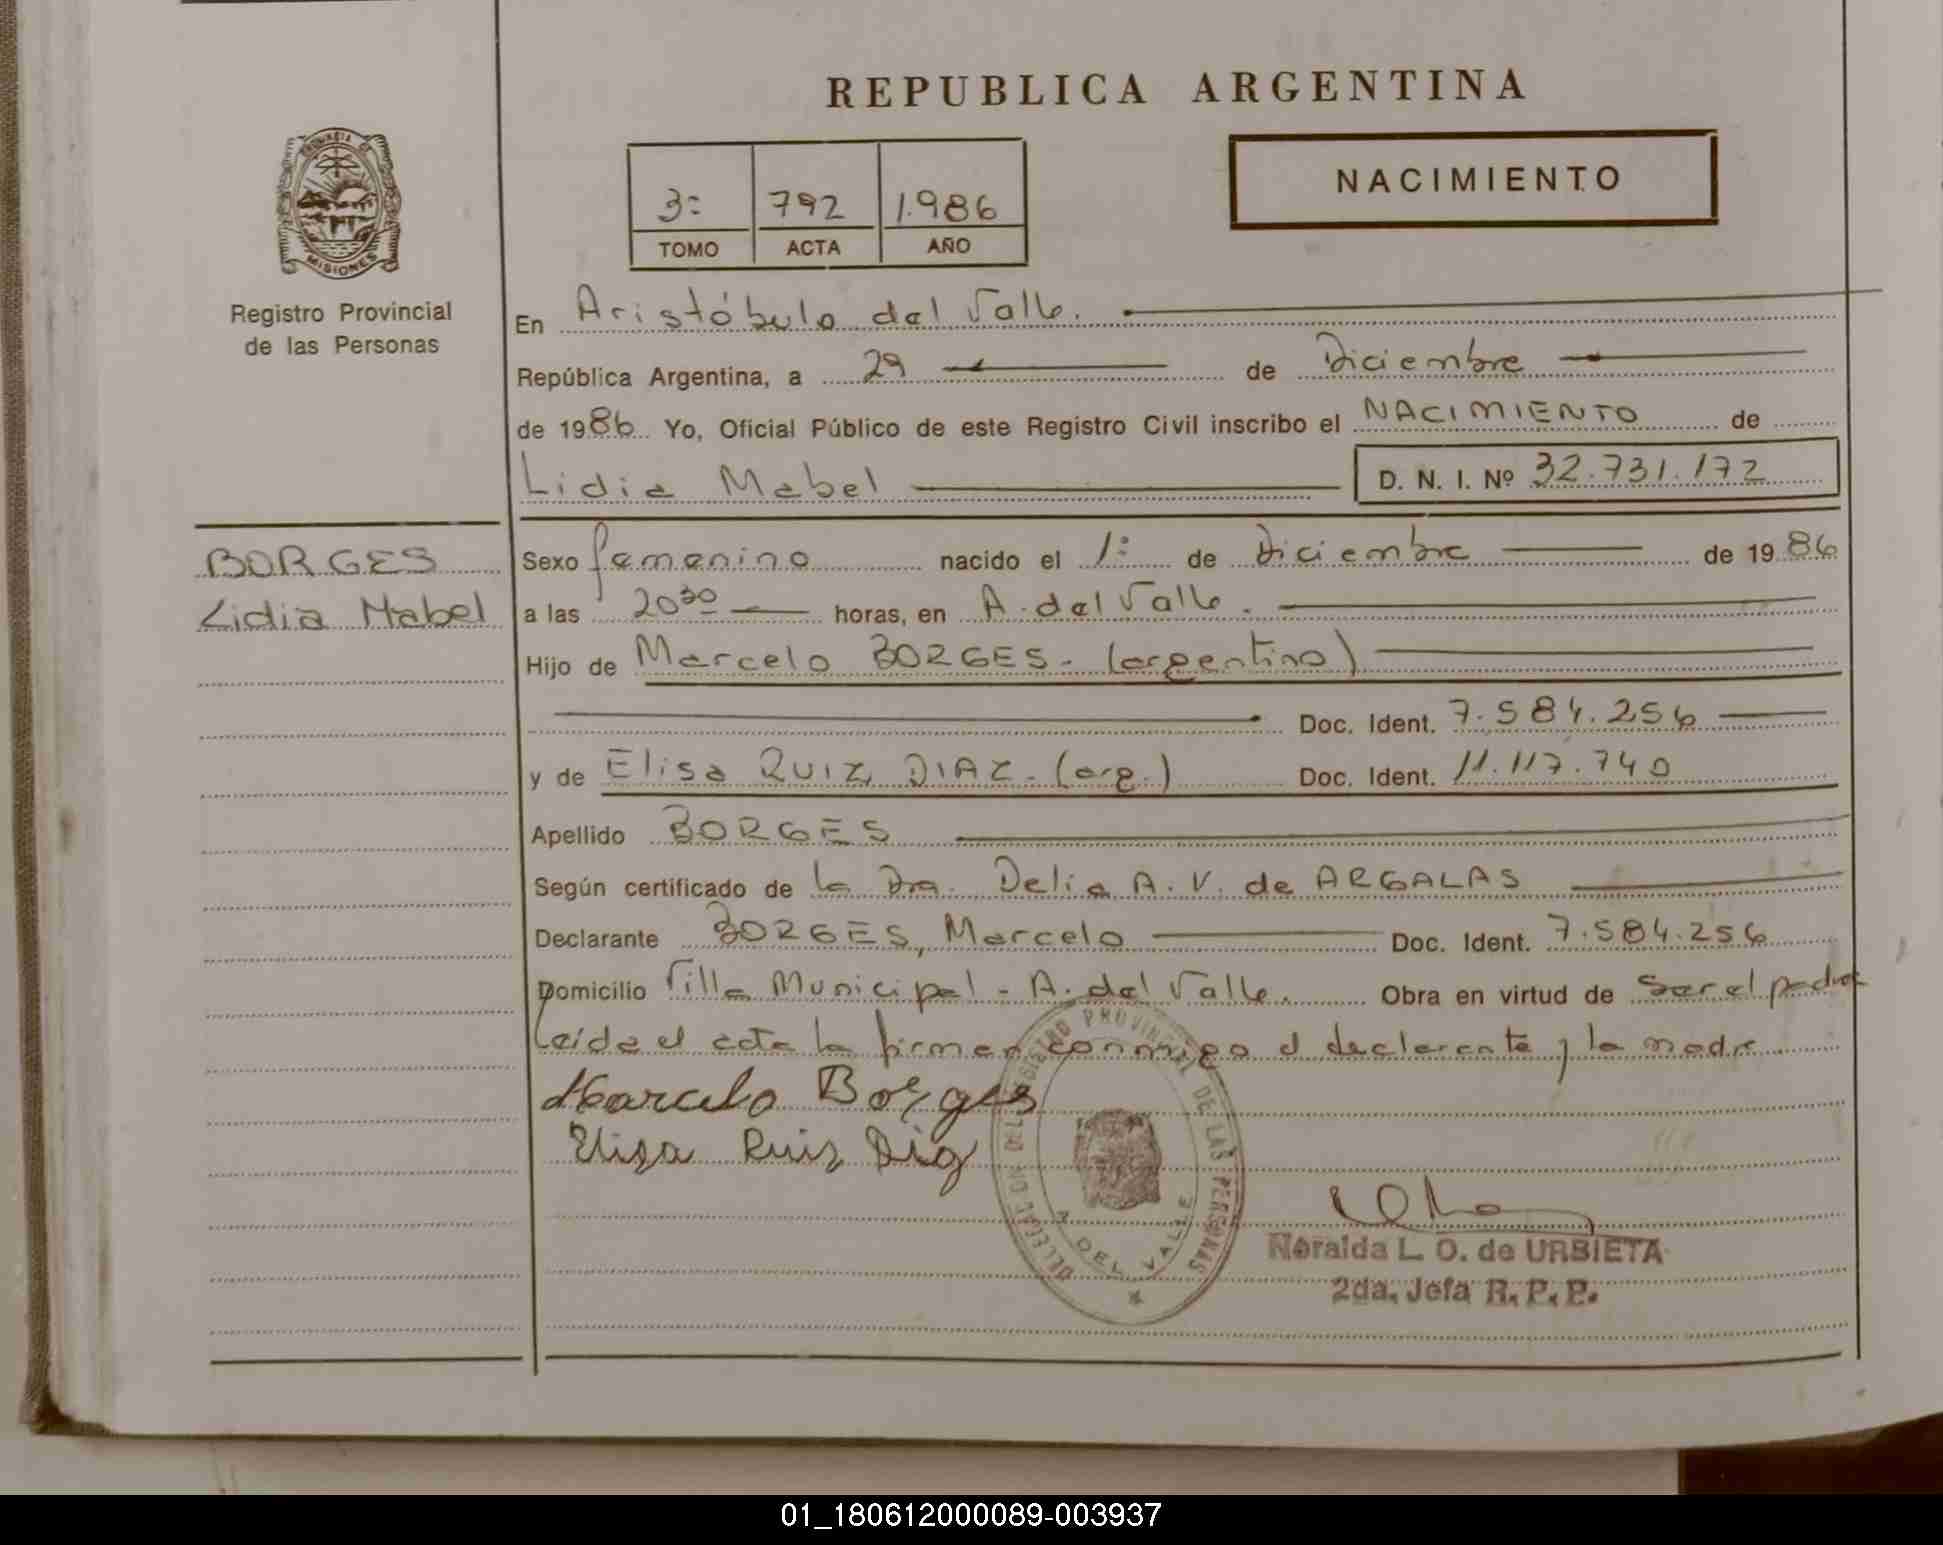 REPUBLICA ARGENTINA
PROVINCIA DE MISIONES
Registro Provincial
de las Personas
3º 792 1.986
TOMO ACTA AÑO
NACIMIENTO
En Aristóbulo del Valle.
República Argentina, a 29 de Diciembre
de 1986 Yo, Oficial Público de este Registro Civil inscribo el NACIMIENTO de
Lidia Mabel D. N. I. Nº 32.731.172
BORGES
Lidia Mabel
Sexo femenino nacido el 1º de Diciembre de 1986
a las 20³⁰ horas, en A. del Valle.
Hijo de Marcelo BORGES - (argentino)
Doc. Ident. 7.584.256
y de Elisa RUIZ DIAZ - (arg.) Doc. Ident. 11.117.740
Apellido BORGES
Según certificado de la Dra. Delia A. V. de ARGALAS
Declarante BORGES, Marcelo Doc. Ident. 7.584.256
Domicilio Villa Municipal - A. del Valle. Obra en virtud de Ser el padre
Leída el acta la firman conmigo el declarante y la madre
Marcelo Borges
Elisa Ruiz Diaz
REGISTRO PROVINCIAL DE LAS PERSONAS
A. DEL VALLE
Noralda L. O. de URBIETA
2da. Jefa R. P. P.
01_180612000089-003937